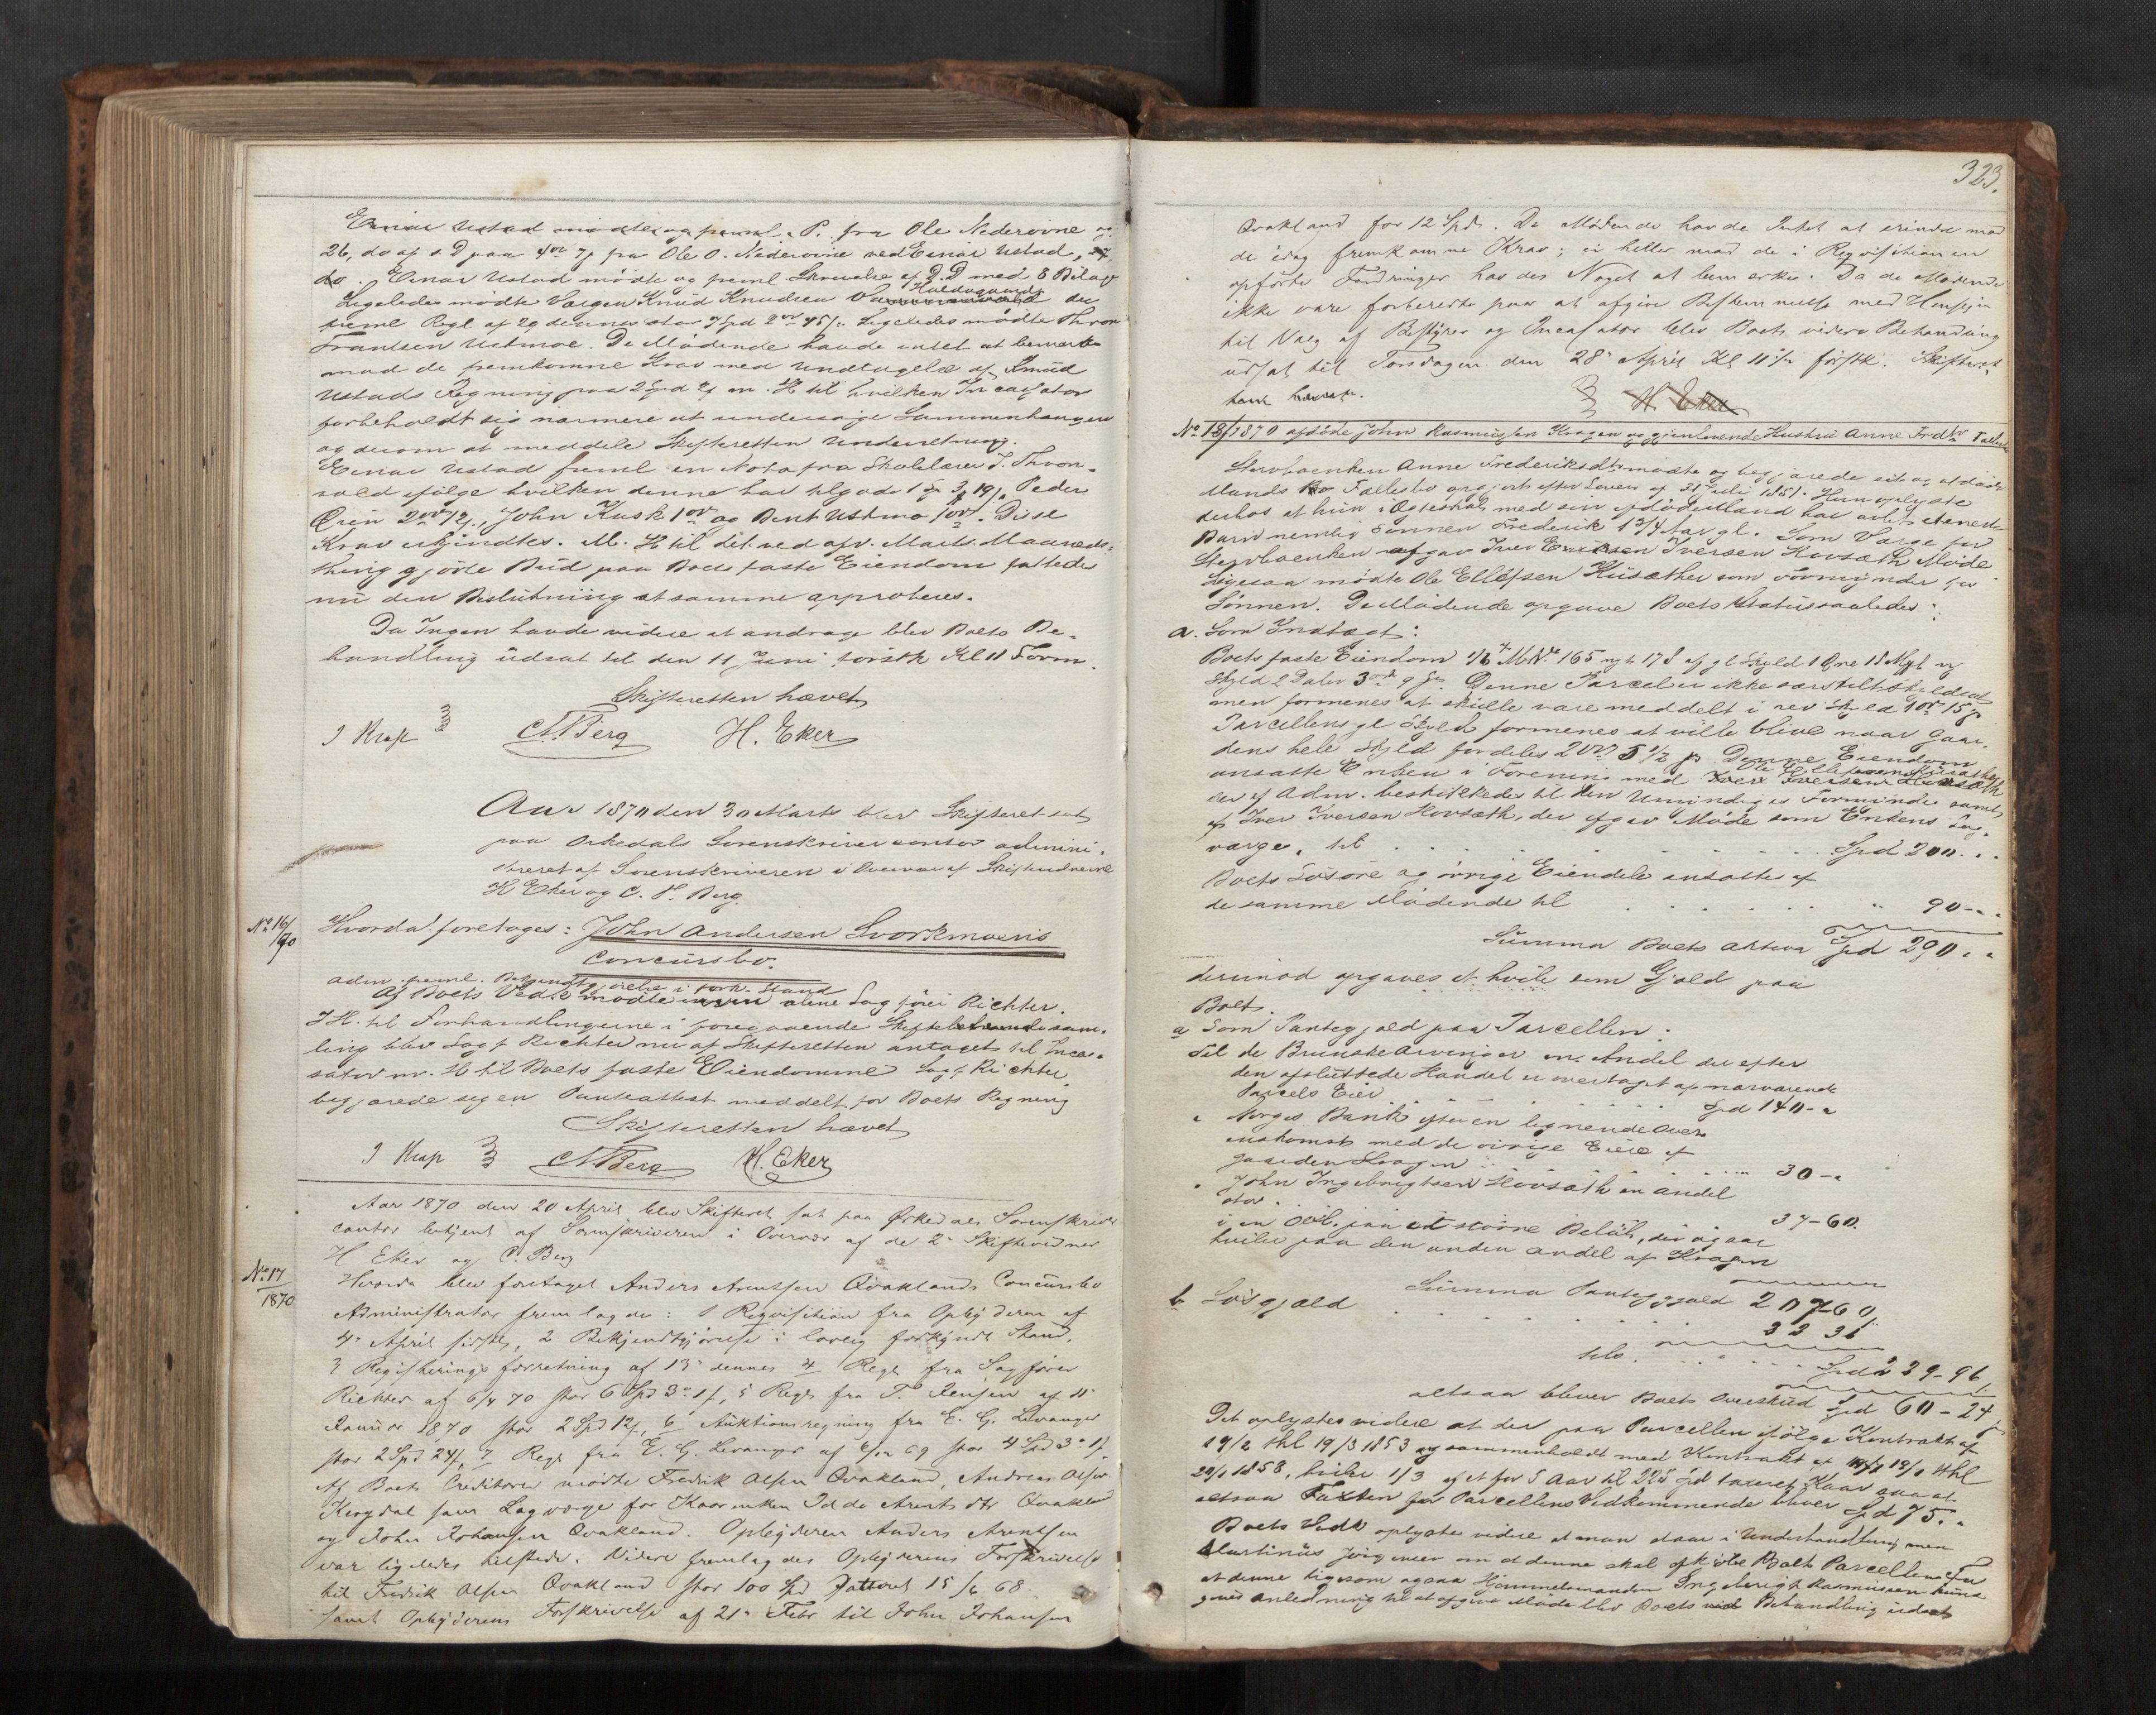 Einar Ustad mødte og freml. P. fra Ole Nederøine og
26, do af s. D paa 4 ort 7 s fra Ole O. Nederøine ved Einar Ustad, 27,
do. Einar Ustad mødte og freml Skrivelse af D. D med 8 Bilag
Ligeledes mødte Værgen Knud Knudsen Haldogaard der
freml Regl af 29 dennes stor 7 Spd 2 ort 45/. Ligeledes mødte Thron
Frantsen Ustmoe. De Mødende havde intet at bemærke
mod de fremkomne Krav med Undtagelse af Knud
Ustads Regning paa 2 Spd m. H til hvilken Incassator
forbeholdt sig nærmere at undersøge Sammenhængen
og derom at meddele Skifteretten Underretning.
Einar Ustad freml en Nota fra Skolelærer J. Thron-
vold ifølge hvilken denne har tilgode 1 19/. Peder
Øien 2 ort 12/., John Kusk 1 ort og Bent Ustmo 1 ort. Disse
Krav erkjendtes. M. H til det ved afv. Marts Maaneds-
thing gjorte Bud paa Boets faste Eiendom fattedes
nu den Beslutning at samme approberes.
Da Ingen havde videre at andrage blev Boets Be-
handling udsat til den 11 Juni førstk Kl 11 Form.
Skifteretten hævet
J Krap C. P. Berg H. Eker
Aar 1870 den 30 Marts blev Skifteret sat
paa Orkedals Sorenskrivercontor admini-
streret af Sorenskriveren i Overvær af Skiftevidnerne
H Eker og C. P. Berg.
No 16/70 Hvorda foretoges: John Andersen Svorkmoens
Concursbo.
adm. freml. Bekjendtgjørelse i fork. Stand
Af Boets Vedk mødte alene Sagfører Richter.
I H. til Forhandlingerne i foregaaende Skiftesam-
ling blev Sagf Richter nu af Skifteretten antaget til Inca-
sator m. H til Boets faste Eiendomme Sagf. Richter
begjærede sig en Panteattest meddelt for Boets Regning
Skifteretten hævet
J Krap C. P. Berg H. Eker
Aar 1870 den 20 April blev Skifteret sat paa Ørkedals Sorenskriver
contor betjent af Sorenskriveren i Overvær af de 2 Skiftevidner
H Eker og C. Berg
No 17/1870 Hvorda blev foretaget Anders Arntsen Qvaklands Concursbo
Administrator fremlagde: 1 Requisition fra Opbyderen af
4 April sidstl, 2 Bekjendtgjørelse i lovlig forkyndt Stand,
3 Registreringsforretning af 13 dennes 4 Regl fra Sagfører
Richter af 6/4 70 stor 6 Spd 3 1/, 5 Regl fra T. Jensen af 11
Januar 1870 stor 2 Spd 12/, 6 Auktionsregning fra E. G. Levanger
stor 2 Spd 24/, 7 Regl fra E. G. Levanger af 69 stor 4 Spd 3 1/.
Af Boets Creditorer mødte Fredrik Olsen Qvakland, Andreas Olsen
som Lagværge for Kaarenken Arents dtr Qvakland
og John Johansen Qvakland. Opbyderen Anders Arentsen
var ligeledes tilstede. Videre fremlagdes Opbyderens Forskrivelse
til Fredrik Olsen Qvakland stor 100 Spd dateret 15/6 68.
samt Opbyderens Forskrivelse af 21 Febr til John Johansen
323.
Qvakland for 12 Spd. De Mødende havde Intet at erindre mod
de idag fremkomne Krav; ei heller mod de i Reqvisitionen
opførte Fordringer havdes Noget at bemærke. Da de Mødende
ikke vare forberedte paa at afgive Bestemmelse med Hensyn
til Valg af Bestyrer og Incasator blev Boets videre Behandling
udsat til Torsdagen den 28 April Kl 11 førstk. Skifteret
tent hævet.
H. Eker
No 18/1870 afdøde John Rasmussen Kragen og gjenlevende Hustru Anne Frdtr Fællesbo
Stervboenken Anne Frederiksdtr mødte og begjærede sit og afdøde
Mands Fællesbo opgjort efter Loven af 31 Juli 1851. Hun oplyste
derhos at hun i Ægteskab med sin afdøde Mand har avlet eteneste
Barn nemlig Sønnen Frederik 1 3/4 Aar gl. Som Værge for
Stervboenken afgav Iver Iversen Hovsæth Møde
Ligesaa mødte Ole Ellefsen Husæther som Formynder for
Sønnen. De Mødende opgave Boets Status saaledes:
a. Som Indtægt:
Boets faste Eiendom 1/6 M. No 165 nyt 178 af gl Skyld 1 Øre 18 Mkl ny
Skyld 2 Daler 3 ort 9 s. Denne Parcel er ikke særskilt skyldsat
men formenes at skulle være meddelt i nev Skyld 1 ort 15 s
Parcellens gl Skyld formenes at ville blive naar Gaar-
dens hele Skyld fordeles 2 ort 5 1/2 s. Denne Eiendom
ansatte Enken i Forening med Ole Ellefsen Husæther
der af Adm. beskikkedes til den Umyndiges Forminder samt
af Iver Iversen Hovsæth, der afgav Møde som Enkens Lag-
værge, til . . . . . . Spd 200. . .
Boets Løsøre og øvrige Eiendele ansattes af
de samme Mødende til . . . . . . " 90 - . .
Summa Boets aktiva Spd 290 . .
derimod opgaves at hvile som Gjæld paa
Boet.
a Som Pantegjæld paa Parcellen:
Til de Brunske Arvinger en Andel der efter
den afsluttede Handel er overtaget af nærværende
Parcels Eier . . . . . . Spd 140 - "
" Norges Bank efter en lignende Over-
enskomst med de øvrige Eiere af
Gaarden Kragen . . . . . . 30 - "
" John Ingebrigtsen Hovsæth en andel
stor . . . . . . 37 - 60.
i en Obl. paa et større Beløb, der ogsaa
hviler paa den anden andel af Kragen
Summa Pantegjæld 207-60
b Løsgjæld . . . . . . 32 36
tils. . . . . . . Spd 239 - 96
altsaa bliver Boets Overskud Spd 60 - 24
Det oplystes videre at der paa Parcellen ifølge Kontrakt af
19/2 thl 19/3 1853 og sammenholdt med Kontrakt af 18/1 thl
20/1 1858, hviler 1/3 af et for 5 Aar til 225 Spd taxeret Kaar saa at
altsaa Taxten for Parcellens Vedkommende bliver Spd 75. "
Boets Vedk oplyste videre at man staar i Underhandling med
Martinus Jørgensen om at denne skal afkjøbe Boet Parcellen. For
at denne ligesom ogsaa Hjemmelsmanden Ingebrigt Rasmussen kunde
gives Anledning til at afgive Møde blev Boets Behandling udsat